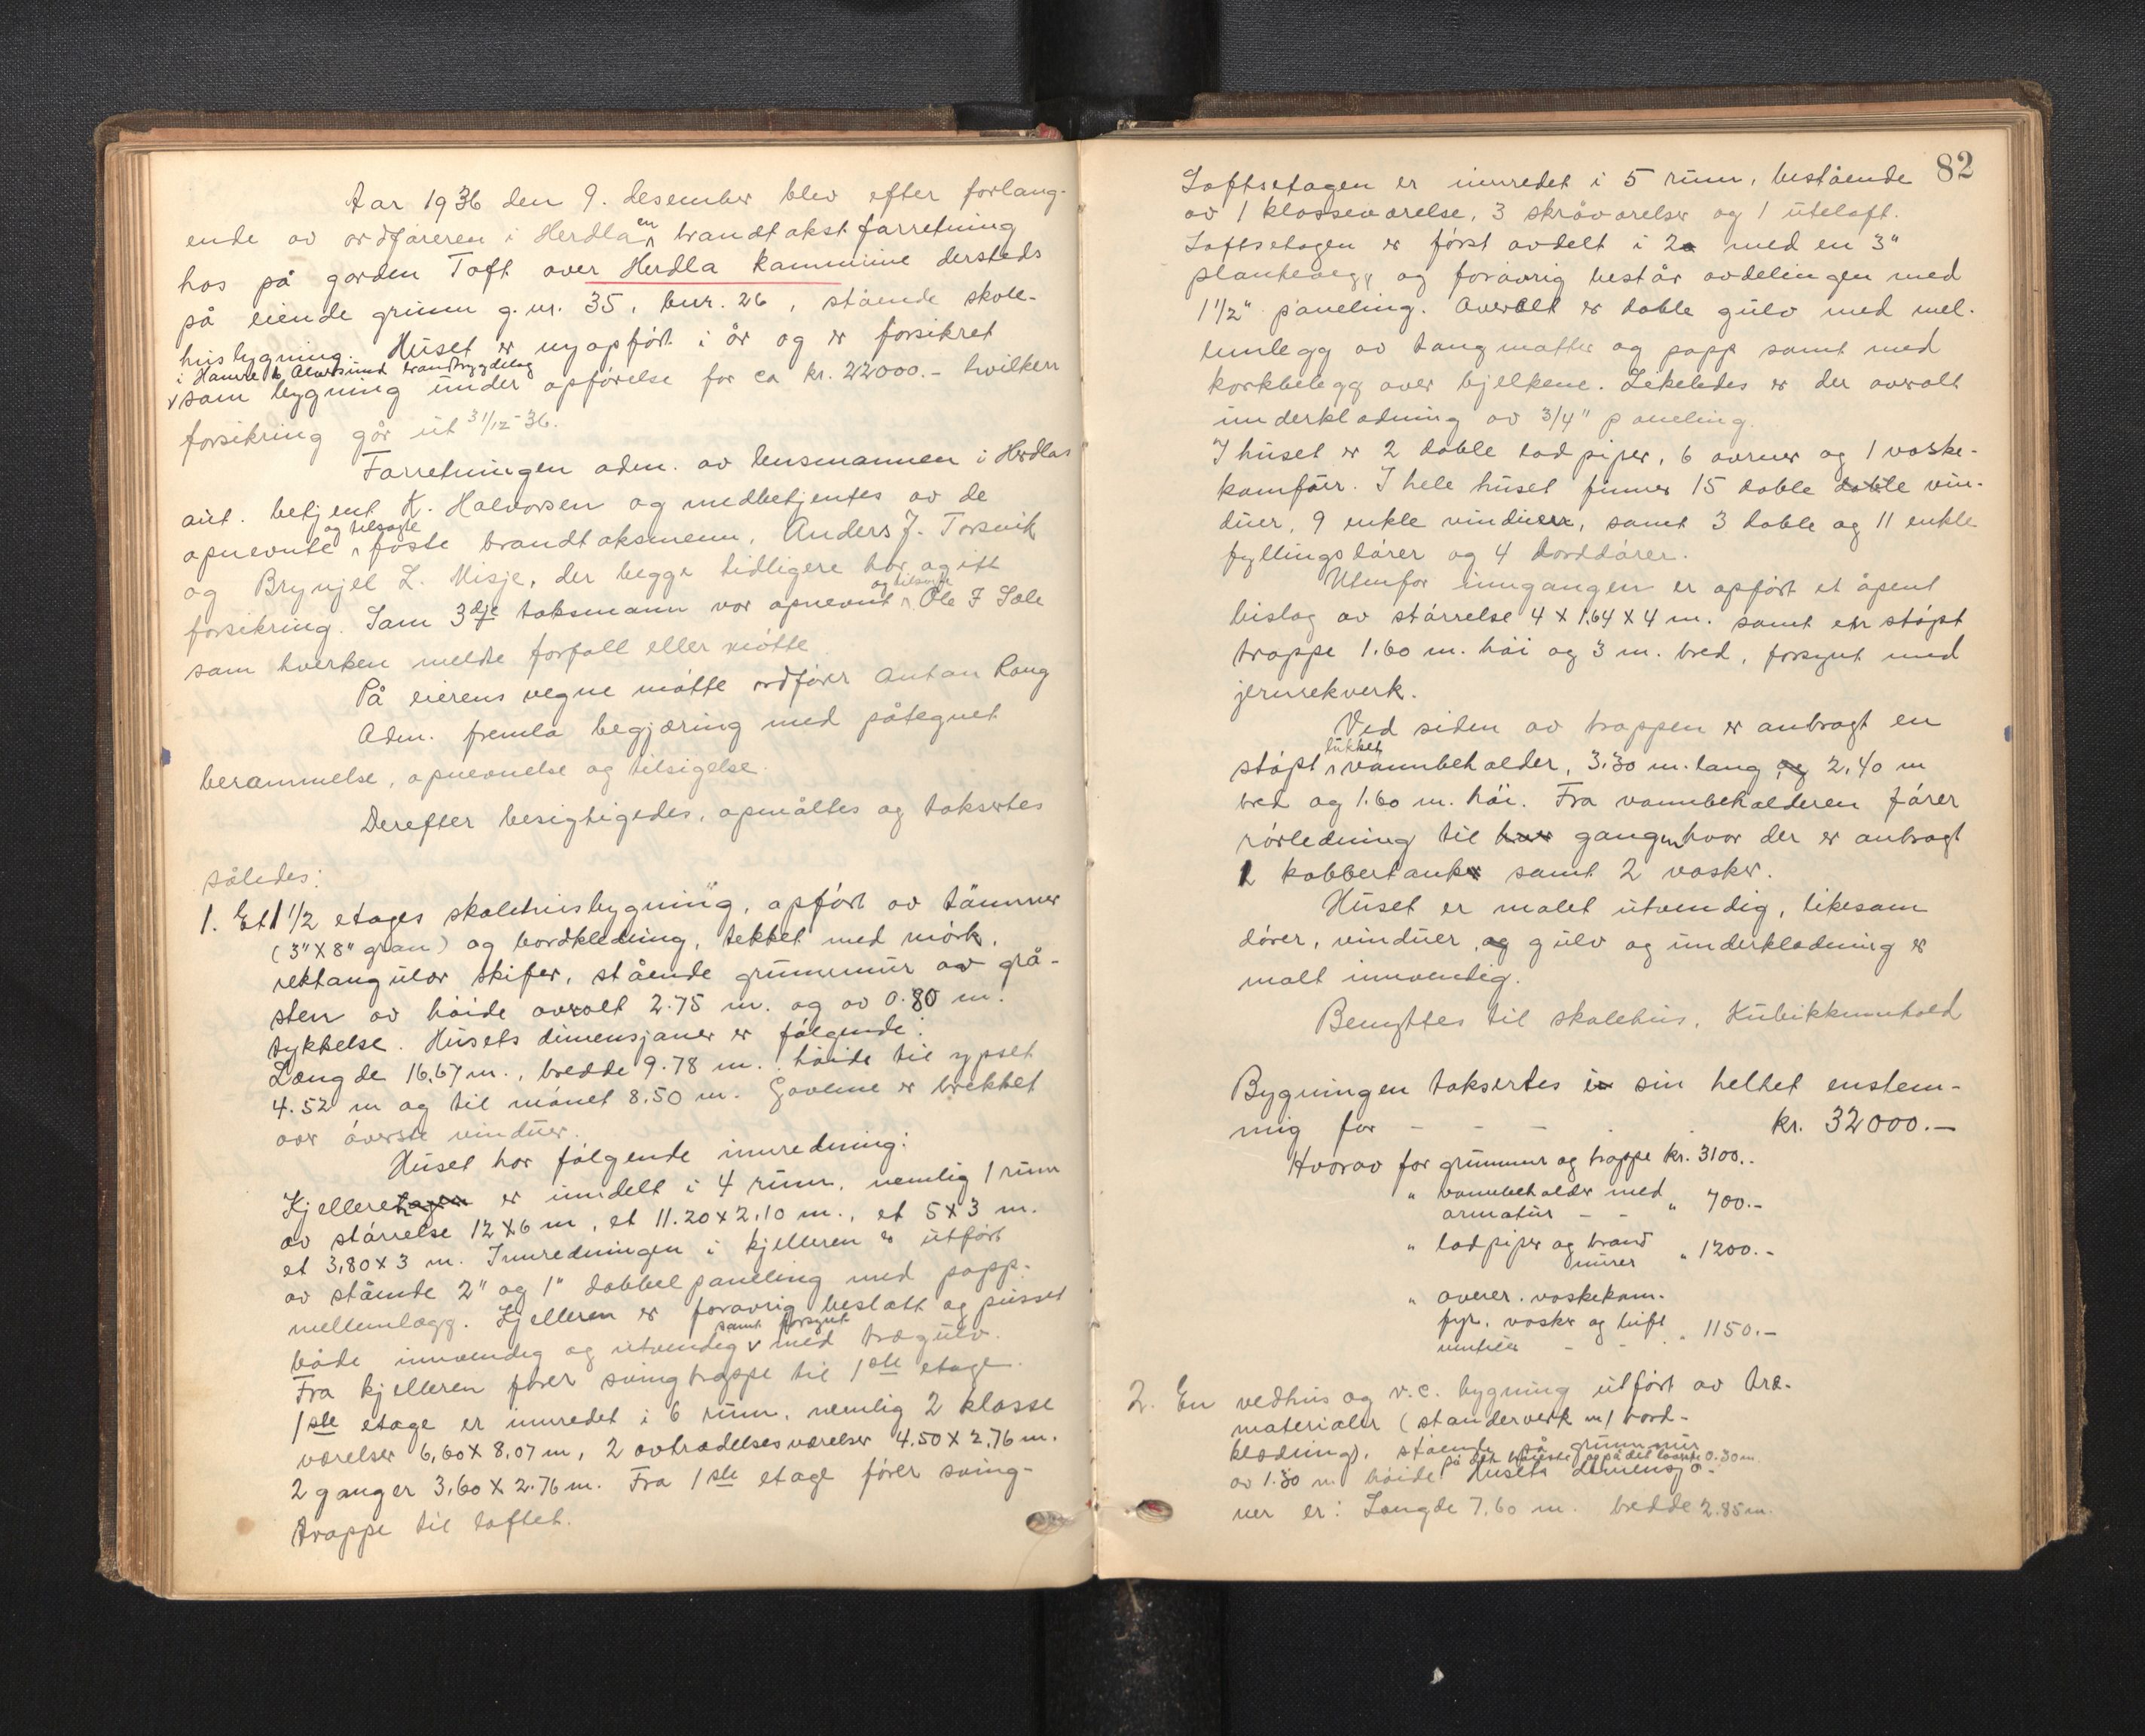 Aar 1936 den 9. desember blev efter forlang-
ende av ordføreren i Herdla en brandtakstforretning
hos på gorden Toft over Herdla kommune dersteds
på eiende grunn g.nr. 35, bnr. 26, stående skole-
husbygning. Huset er nyopført i år og er forsikret
i Hamre & Alversund brandtrygdelag
som bygning under opførelse for ca kr. 22000.- hvilken
forsikring går ut 31/12-36.
Forretningen adm. av lensmannen i Herdlas
aut. betjent K. Halvorsen og medbetjentes av de
opnevnte og tilsagte faste brandtaksmenn, Anders J. Torsvik
og Brynjel L. Misje, der begge tidligere har agitt
forsikring. Som 3dje taksmann var opnevnt og tilsagt Ole F Sæle
som hverken meldte forfall eller møtte.
På eierens vegne møtte ordfører Anton Rong
Adm. fremla begjæring med påtegnet
berammelse, opnevnelse og tilsigelse.
Derefter besigtigedes, opmåltes og taksertes
således:
1. Et 1 1/2 etages skolehusbygning, opført av tømmer
(3"X8" gran) og bordkledning, tekket med mørk,
rektangulær skifer, stående grunnmur av grå-
sten av høide overalt 2.75 m. og av 0.80 m.
tykkelse. Husets dimensjoner er følgende:
Længde 16,67 m., bredde 9.78 m., høide til gpset
4.52 m og til mønet 8.50 m. Gavlene er brekket
over øverste vinduer.
Huset har følgende innredning:
Kjelleretagen er inndelt i 4 rum, nemlig 1 rum
av størrelse 12X6 m, et 11.20X2.10 m., et 5X3 m.
et 3,80X3 m. Innredningen i kjelleren er utført
av stående 2" og 1" dobbel paneling med papp-
mellemlægg. Kjelleren er forøvrig beslått og pusset
både innvendig og utvendig samt forsynt med trægulv.
Fra kjelleren fører svingtrappe til 1ste etage.
1ste etage er innredet i 6 rum, nemlig 2 klasse
værelser 6,60X8,07 m, 2 avtrædelsesværelser 4.50X2,76 m.
2 ganger 3,60X2.76 m. Fra 1ste etage fører sving-
trappe til loftet.
82
Loftsetagen er innredet i 5 rum, bestående
av 1 klasseværelse, 3 skråværelser og 1 uteloft.
Loftsetagen er først avdelt i 2 med en 3"
plankevegg og forøvrig består avdelingen med
1 1/2" paneling. Overalt er doble gulv med mel-
lemlegg av tangmatter og papp samt med
korkbelegg over bjelkene. Likeledes er der overalt
underklædning av 3/4" paneling.
I huset er 2 doble lodpiper, 6 ovner og 1 vaske-
komfør. I hele huset finnes 15 doble doble vin-
duer, 9 enkle vinduer, samt 3 doble og 11 enkle
fyllingsdører og 4 borddører.
Utenfor inngangen er opført et åpent
bislag av størrelse 4 X 1.64 X 4 m. samt en støpt
trappe 1.60 m. høi og 3 m. bred, forsynt med
jernrekverk.
Ved siden av trappen er anbragt en
støpt lukket vannbeholder, 3.30 m. lang og 2,40 m
bred og 1.60 m. høi. Fra vannbeholderen fører
rørledning til hver gangen hvor der er anbragt
1 kobbertank samt 2 vasker.
Huset er malet utvendig, likesom
dører, vinduer, og gulv og underklædning er
malt innvendig.
Benyttes til skolehus. Kubikkinnhold
Bygningen taksertes i sin helhet enstem-
mig for - - - kr. 32000.-
Hvorav for grunnmur og trappe kr. 3100.-
" vannbeholder med
armatur - - " 700.-
" lodpiper og brand
murer " 1200.-
" ovner, vaskekom-
fyr, vasker og luft
ventiler - - " 1150.-
2. En vedhus og v.c. bygning utført av træ-
materialer (standerverk m/ bord-
klædning), stående på grunnmur
av 1.30 m høide på det høieste og på det laveste 0.30 m. Husets dimensjo-
ner er: Længde 7,60 m. bredde 2.85 m.